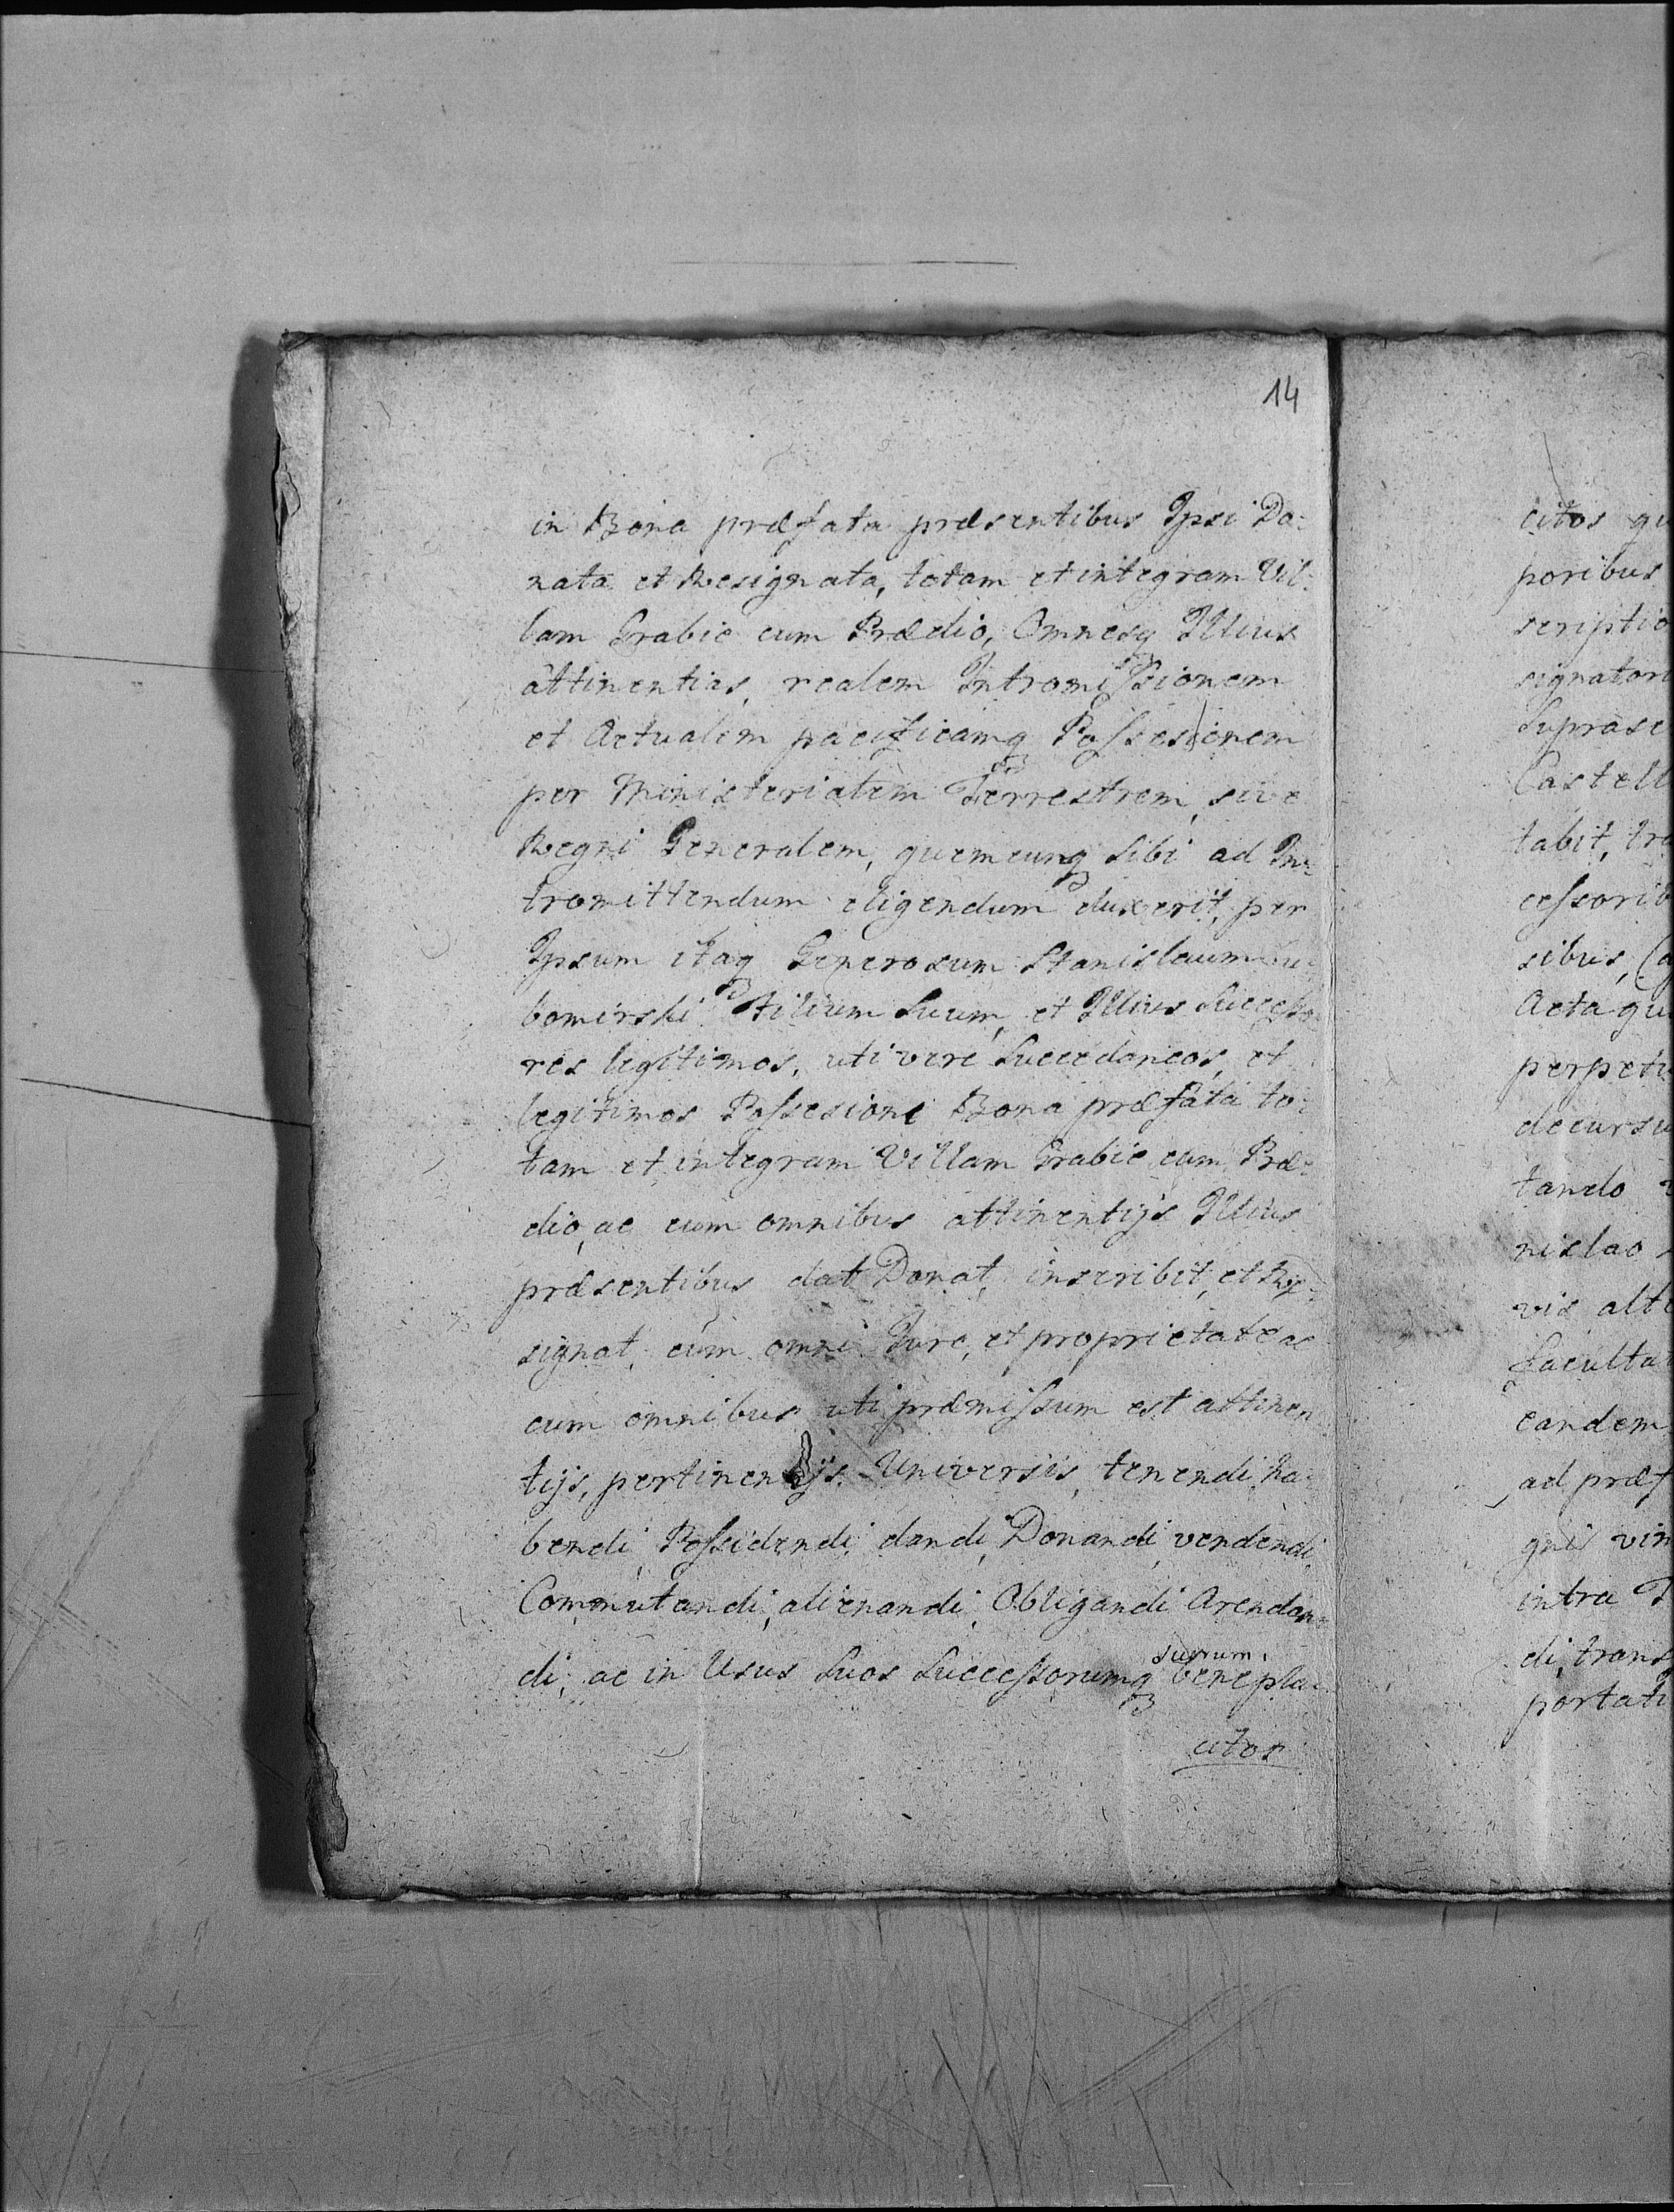 14
in Bona præfata præsentibus Ipsi Do-
nata et Resignata, totam et integram Vil-
lam Grabie cum Prædio, Omnesq Illius
attinentias, realem Intromissionem
et Actualem pacificamq Possesionem
per Ministerialem Terrestrem, sive
Regni Generalem, quemcunq sibi ad In-
tromittendum eligendum duxerit, per
Ipsum itaq Generosum Stanislaum Lu-
bomirski Filium Suum, et Illius Successo-
res legitimos, uti vere Succedaneos, et
legitimos Possesione Bona præfata to-
tam et integram Villam Grabie cum Præ-
dio, ac cum omnibus attinentijs Illius
præsentibus dat Donat, inscribit, et Re-
signat, cum omni Jure, et proprietate ac
cum omnibus uti præmissum est attinen
tijs, pertinentijs Universis, tenendi, ha-
bendi, Possidendi, dandi, Donandi, vendendi,
Commutandi, alienandi, Obligandi Arendan-
di, ac in Usus Suos Successorumq suorum benepla-
citos
citos qu
poribus
scriptio
signator
Suprasc
Castell
tabit, tra
cessorib
sibus, (a
Acta qu
perpetu
decursu
tando
nislao
vis alt
facultat
eandem
ad præf
gni vin
intra T
di, trans
portati